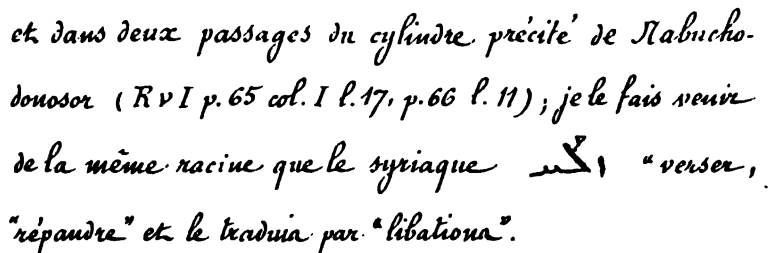 et dans deux passages du cylindre précité de Nabucho-
donosor (R V I p. 65 col. I l. 17, p. 66 l. 11); je le fais venir
de la même racine que le syriaque “verser,
“répandre” et le traduis par “libations”.